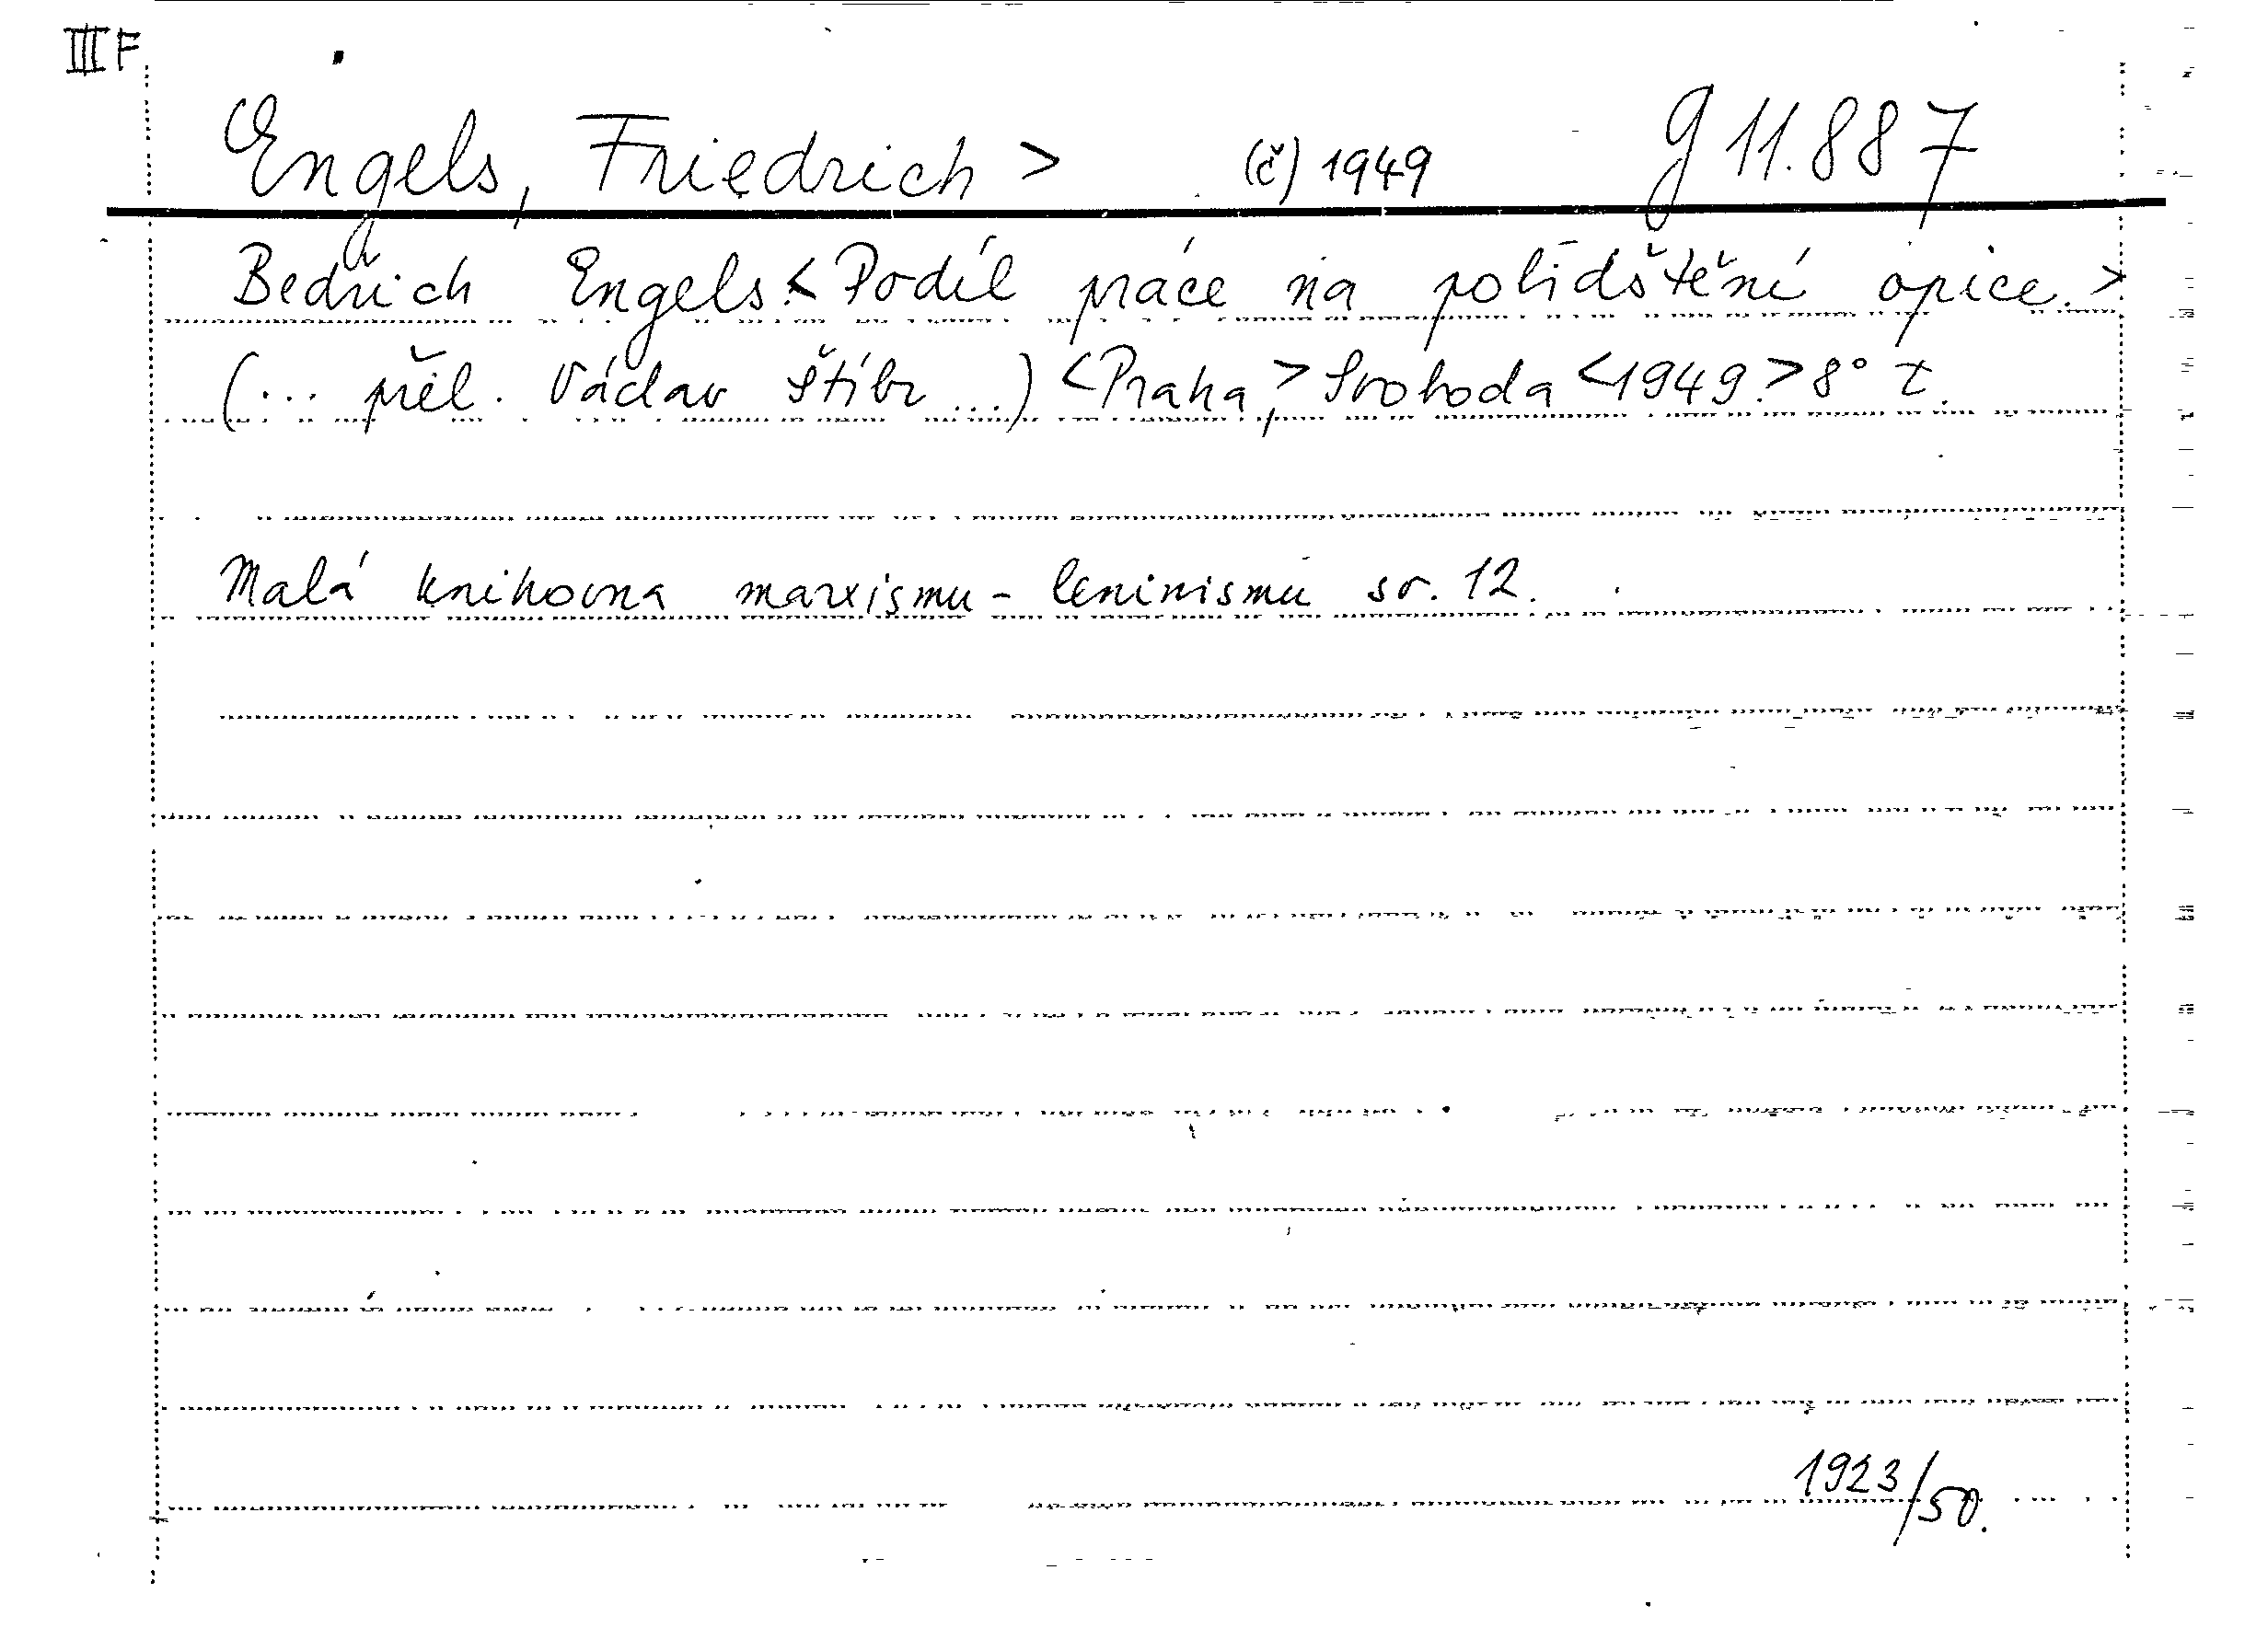 III F
Engels, Friedrich > (č) 1949 g 11.887
Bedřich Engels. < Podíl práce na polidštění opice. >
(... přel. Václav Štíbr ...) < Praha, > Svoboda < 1949. > 8° t.
Malá knihovna marxismu - leninismu sv. 12.
1923/50.